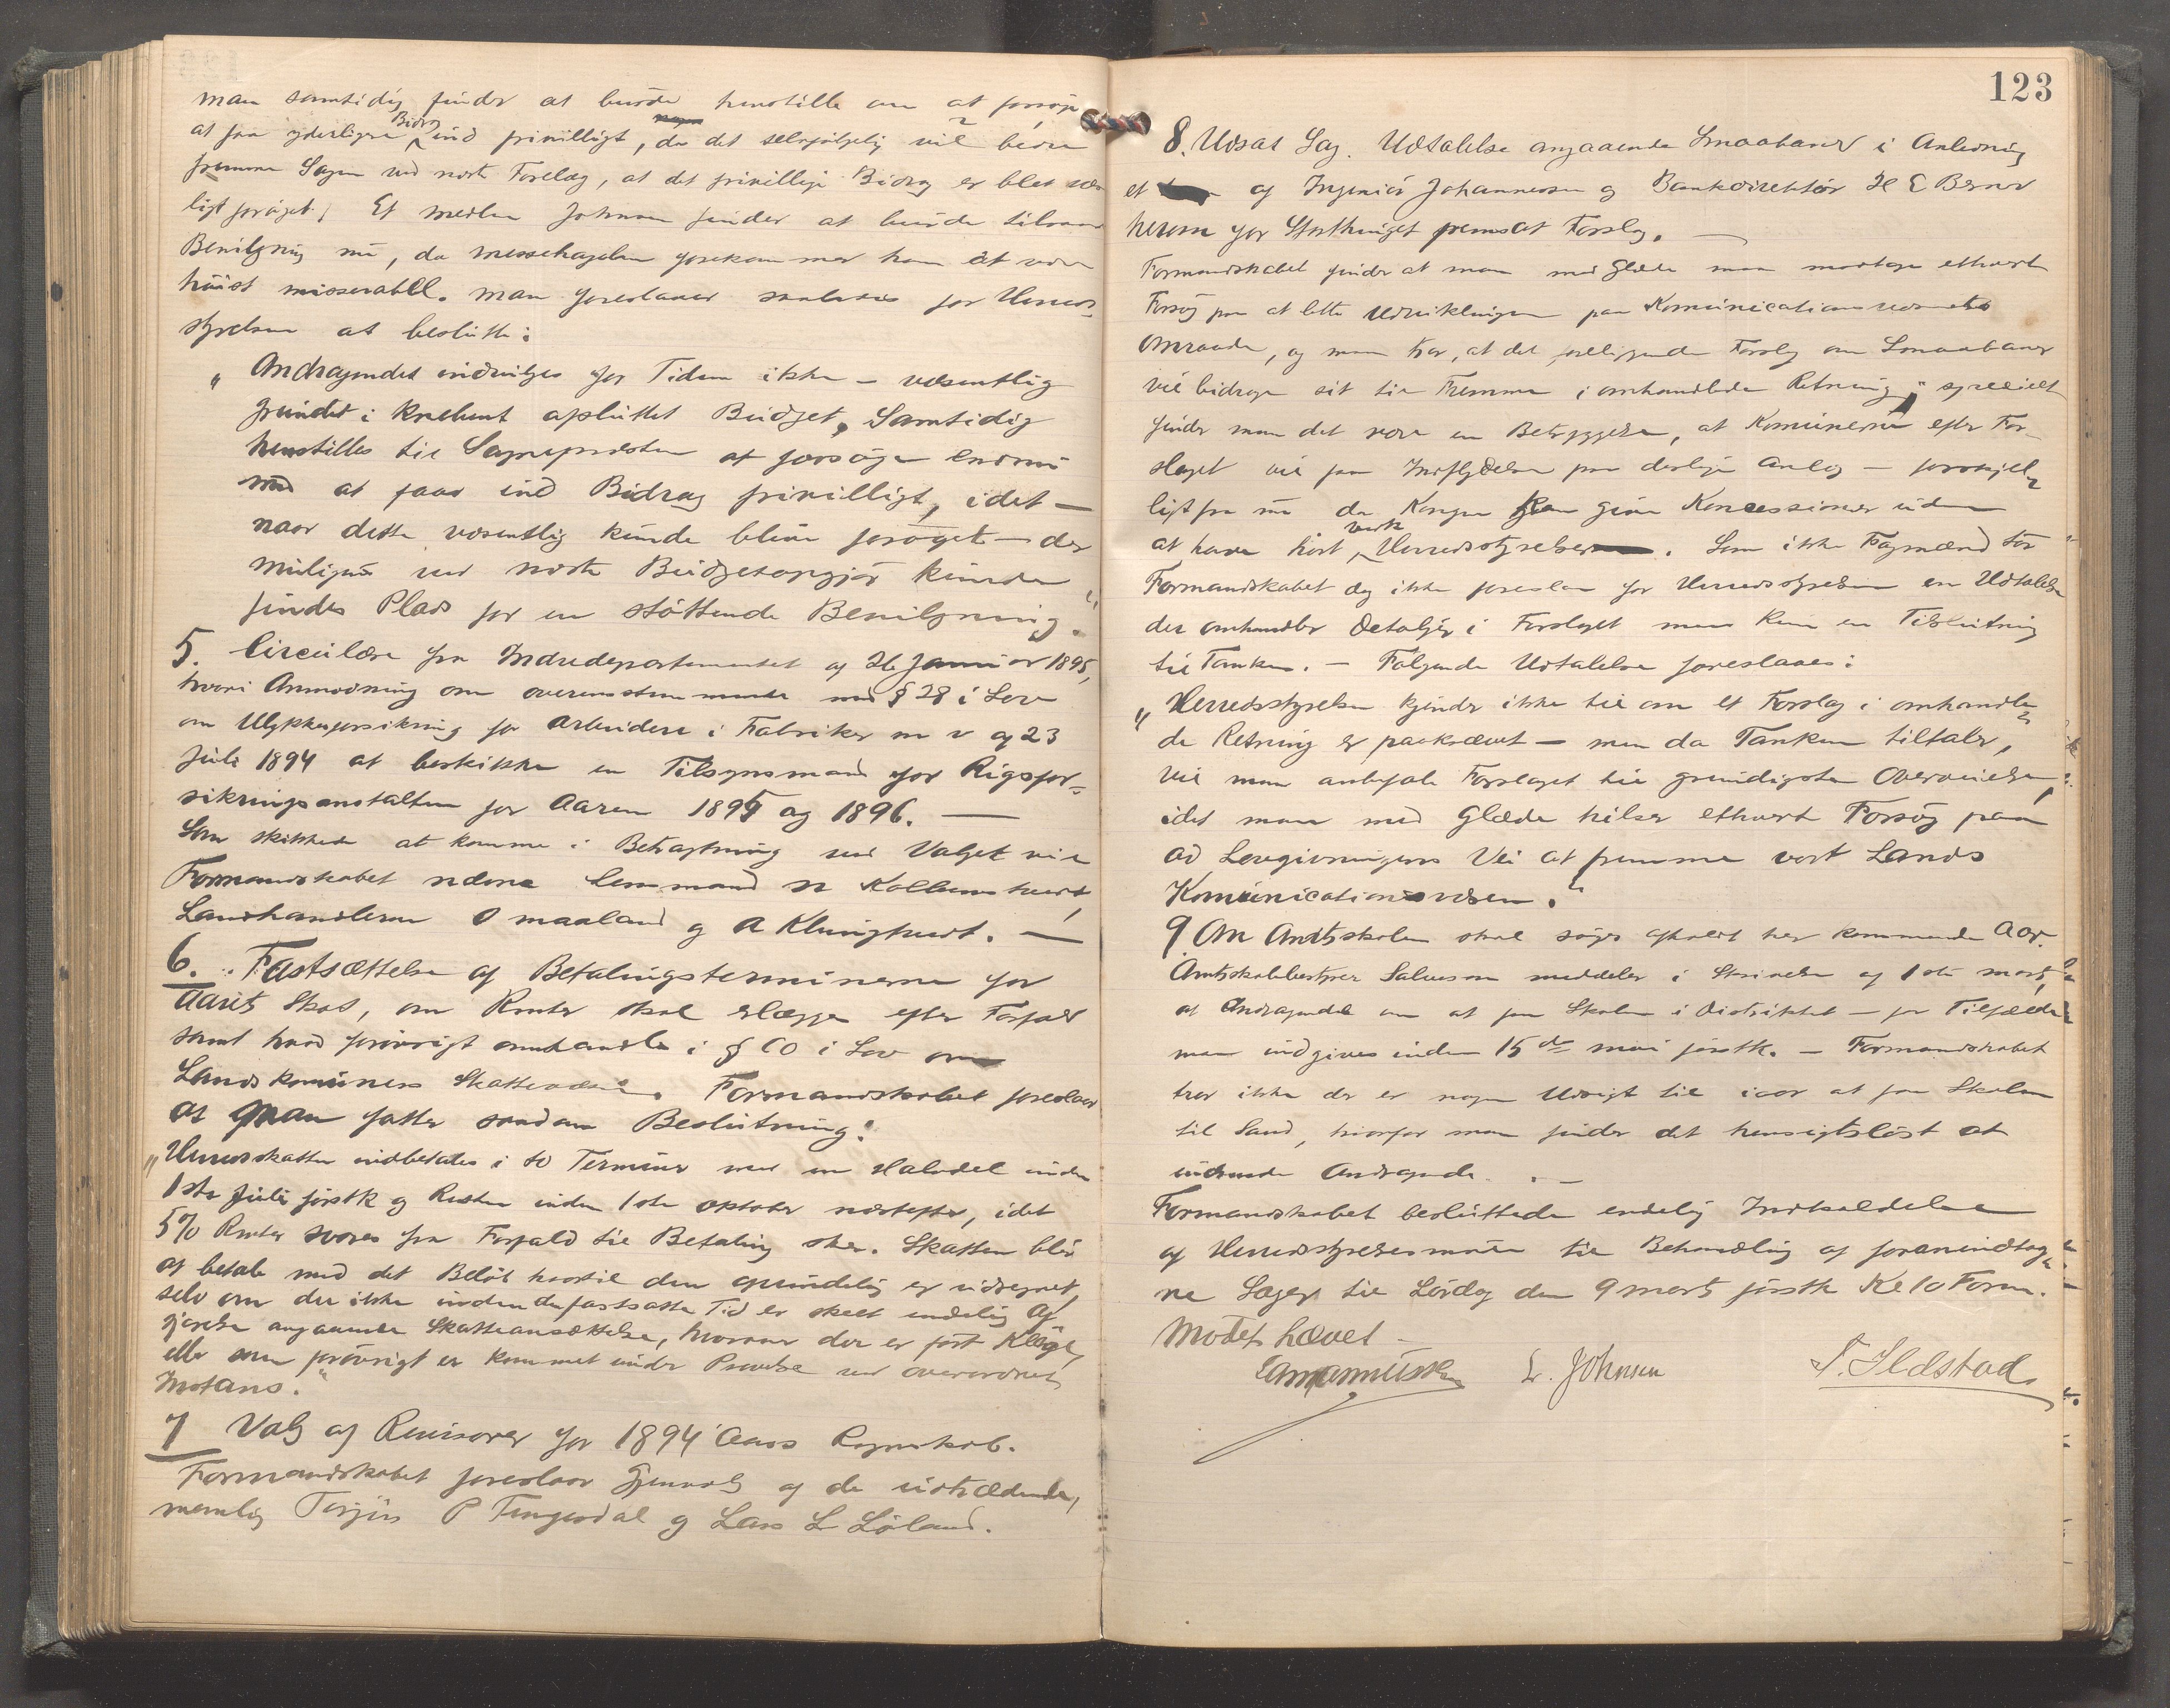 man samtidig finder at burde henstille om at forsøge
at faa yderligere Bidrag ind frivilligt, da det selvfølgelig vil bedre
fremme Sagen ved næste Forelæg, at det frivillige Bidrag er blet væsent
ligt forøget. Et medlem Johnsen finder at burde tilraade
Bevilgning nu, da messehagelen forekommer ham at være
höist misserabel. man foreslaaer saaledes for Herreds-
styrelsen at beslutte:
"Andragendet indvilges for Tiden ikke - væsentlig
grundet i knebent afsluttet Budget, Samtidig
henstilles til Sognepresten at forsøge endnu
med at faae ind Bidrag frivilligt, idet -
naar dette væsentlig kunde blive forøget - der
muligens ved næste Budgetopgjör kunde
findes Plads for en støttende Bevilgning."
5. Circulære fra Indredepartementet af 26 Januar 1895,
hvori Anmodning om overensstemmende med § 28 i Lov
om Ulykkesforsikring for Arbeidere i Fabriker m v af 23
Juli 1894 at beskikke en Tilsynsmand for Rigsfor-
sikringsanstalten for Aarene 1895 og 1896. —
Som skikkede at komme i Betragtning ved Valget vil
Formandskabet nævne Lensmand N Kolbenstvedt,
Landhandlerne O Maaland og A Klungtvedt. —
6. Fastsættelse af Betalingsterminerne for
Aarets Skat, om Renter skal erlægges efter Forfald
samt hvad forövrigt omhandles i § 60 i Lov om
Landskommuners Skattevæsen. Formandskabet foreslaar
at man fatter saadan Beslutning:
"Herredsskatten indbetales i to Terminer med en Halvdel inden
1ste Juli förstk og Resten inden 1ste oktober næstefter, idet
5% Renter svares fra Forfald til Betaling sker. Skatten blir
at betale med det Beløb hvortil den oprindelig er udregnet,
selv om der ikke inden den fastsatte Tid er skeet endelig Af
gjørelse angaaende Skatteansættelse, hvorover der er ført Klage,
eller som forövrigt er kommet under Prøvelse ved overordnet
Instans."
7 Valg af Revisorer for 1894 Aars Regnskab.
Formandskabet foreslaar Gjenvalg af de udtrædende,
nemlig Torjus P Tengesdal og Lars L Löland.
123
8. Udsat Sag. Udtalelse angaaende Smaabaner i Anledning
et af Ingeniør Johannessen og Bankdirektör H E Berner
herom for Storthinget fremsat Forslag. —
Formandskabet finder at man med Glæde maa modtage ethvert
Forsøg paa at lette Udviklingen paa Komunicationsvæsenets
Omraade, og man tror, at det foreliggende Forslag om Smaabaner
vil bidrage sit til Fremme i omhandlede Retning; specielt
finder man det være en Betryggelse, at Komunerne efter For-
slaget vil faa Indflydelse paa deslige Anlæg - forskjel-
ligt fra nu da Kongen kan give Koncessioner uden
at have hørt vedk Herredsstyrelser. Som ikke Fagmænd tör
Formandskabet dog ikke foreslaa for Herredsstyrelsen en Udtalelse
der omhandler Detaljer i Forslaget men kun en Tilslutning
til Tanken. - Følgende Udtalelse foreslaaes:
"Herredsstyrelsen kjender ikke til om et Forslag i omhandle-
de Retning er paakrævet - men da Tanken tiltaler,
vil man anbefale Forslaget til grundigste Overveielse,
idet man med Glæde hilser ethvert Forsøg paa
ad Lovgivningens Vei at fremme vort Lands
Komunicationsvæsen."
9 Om Amtsskolen skal søges afholdt her kommende Aar.
Amtsskolebestyrer Salvesen meddeler i Skrivelse af 1ste marts,
at Andragende om at faa Skolen i Distriktet - for Tilfælde
maa indgives inden 15de mai förstk. - Formandskabet
tror ikke der er nogen Udsigt til iaar at faa Skolen
til Sand, hvorfor man finder det hensigtsløst at
indsende Andragende. —
Formandskabet besluttede endelig Indkaldelse
af Herredsstyrelsesmøde til Behandling af foranindtag-
ne Sager til Lördag den 9 marts förstk Kl 10 Form.
Mödet hævet -
Asmundsen L. Johnsen T. Ildstad